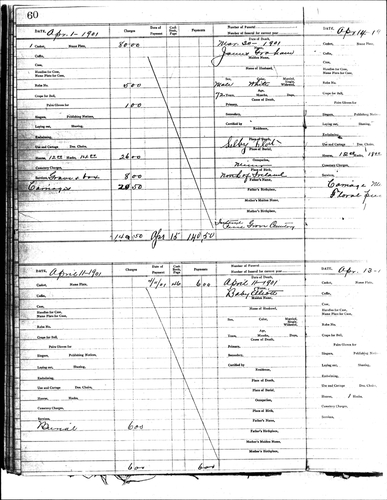 60
DATE, Apr. 1 - 1901
Charges
Date of Payment
Cash Book, Page
Payments
Number of Funeral
Number of funeral for current year
1 Casket, Name Plate, 80 00
Mar. 30 - 1901
Date of Death,
Coffin,
James
Maiden Name,
Case,
Name of Husband,
Handles for Case,
Name Plate for Case,
Sex, Color, Married, Single, Widowed,
Robe No. 5 00
Male White
Age,
Crape for Bell,
72 Years, Months, Days,
Cause of Death,
Pairs Gloves for 1 00
Primary,
Singers, Publishing Notices,
Secondary,
Laying out, Shaving,
Certified by
Embalming,
Residence,
Use and Cartage Doz. Chairs,
Place of Death,
Hearse, 26 00
Place of Burial,
Cemetery Charges,
Occupation,
Services, Grave & box 8 00
Miner
Place of Birth,
Carriages
North of Ireland
Father's Name,
Father's Birthplace,
Mother's Maiden Name,
Mother's Birthplace,
Cemetery
140.50 Apr 15 140.50
DATE, April 11 - 1901
Charges
Date of Payment
Cash Book, Page
Payments
Number of Funeral
Number of funeral for current year
Casket, Name Plate,
6 00
April 11 - 1901
Date of Death,
Coffin,
Baby Elliott
Maiden Name,
Case,
Name of Husband,
Handles for Case,
Name Plate for Case,
Sex, Color, Married, Single, Widowed,
Robe No.
Age,
Crape for Bell,
Years, Months, Days,
Cause of Death,
Pairs Gloves for
Primary,
Singers, Publishing Notices,
Secondary,
Laying out, Shaving,
Certified by
Embalming,
Residence,
Use and Cartage Doz. Chairs,
Place of Death,
Hearse, Hacks,
Place of Burial,
Cemetery Charges,
Occupation,
Services,
Place of Birth,
Burial 6 00
Father's Name,
Father's Birthplace,
Mother's Maiden Name,
Mother's Birthplace,
6 00 6 00
DATE, Apr. 14 - 19
Casket, Name Plate,
Coffin,
Case,
Handles for Case,
Name Plate for Case,
Robe No.
Crape for Bell,
Pairs Gloves for
Singers, Publishing Notices,
Laying out, Shaving,
Embalming,
Use and Cartage Doz. Chairs,
Hearse,
Cemetery Charges,
Services,
Carriage
Floral
DATE, Apr. 13 -
Casket, Name Plate,
Coffin,
Case,
Handles for Case,
Name Plate for Case,
Robe No.
Crape for Bell,
Pairs Gloves for
Singers, Publishing Notices,
Laying out, Shaving,
Embalming,
Use and Cartage Doz. Chairs,
Hearse, 1 Hacks,
Cemetery Charges,
Services,